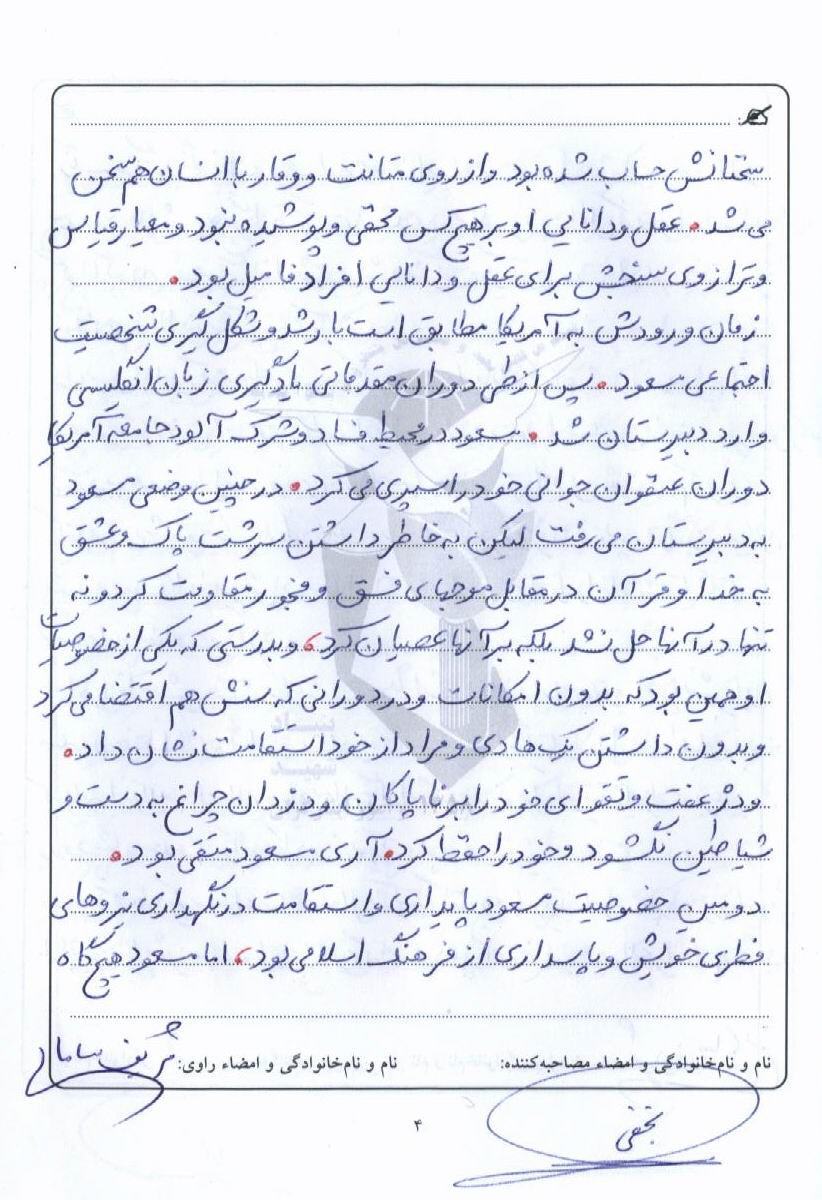 سخنانش حساب شده بود و از روی متانت و وقار با انسان هم سخن
می شد. عقل و دانایی او بر هیچ کس مخفی و پوشیده نبود و معیار قیاس
و ترازوی سنجش برای عقل و دانایی افراد فامیل بود.
زمان ورودش به آمریکا مطابق است با رشد و شکل گیری شخصیت
اجتماعی مسعود. پس از طی دوران مقدماتی یادگیری زبان انگلیسی
وارد دبیرستان شد. مسعود در محیط فساد و شرک آلود جامعه آمریکا
دوران عنفوان جوانی خود را سپری می کرد. در چنین وضعی مسعود
به دبیرستان می رفت لیکن به خاطر داشتن سرشت پاک و عشق
به خدا و قرآن در مقابل موجهای فسق و فجور مقاومت کرد و نه
تنها در آنها حل نشد بلکه بر آنها عصیان کرد، و بدرستی که یکی از خصوصیات
او همین بود که بدون امکانات و در دورانی که سنش هم اقتضا می کرد
و بدون داشتن یک هادی و مراد از خود استقامت نشان داد.
و دژ عفت و تقوای خود را بر ناپاکان و دزدان چراغ به دست و
شیاطین نگشود و خود را حفظ کرد. آری مسعود متقی بود.
دومین خصوصیت مسعود پایداری و استقامت در نگهداری نیروهای
فطری خویش و پاسداری از فرهنگ اسلامی بود، اما مسعود هیچ گاه
نام و نام‌خانوادگی و امضاء مصاحبه‌کننده: نام و نام‌خانوادگی و امضاء راوی: شریف
نجفی
۴